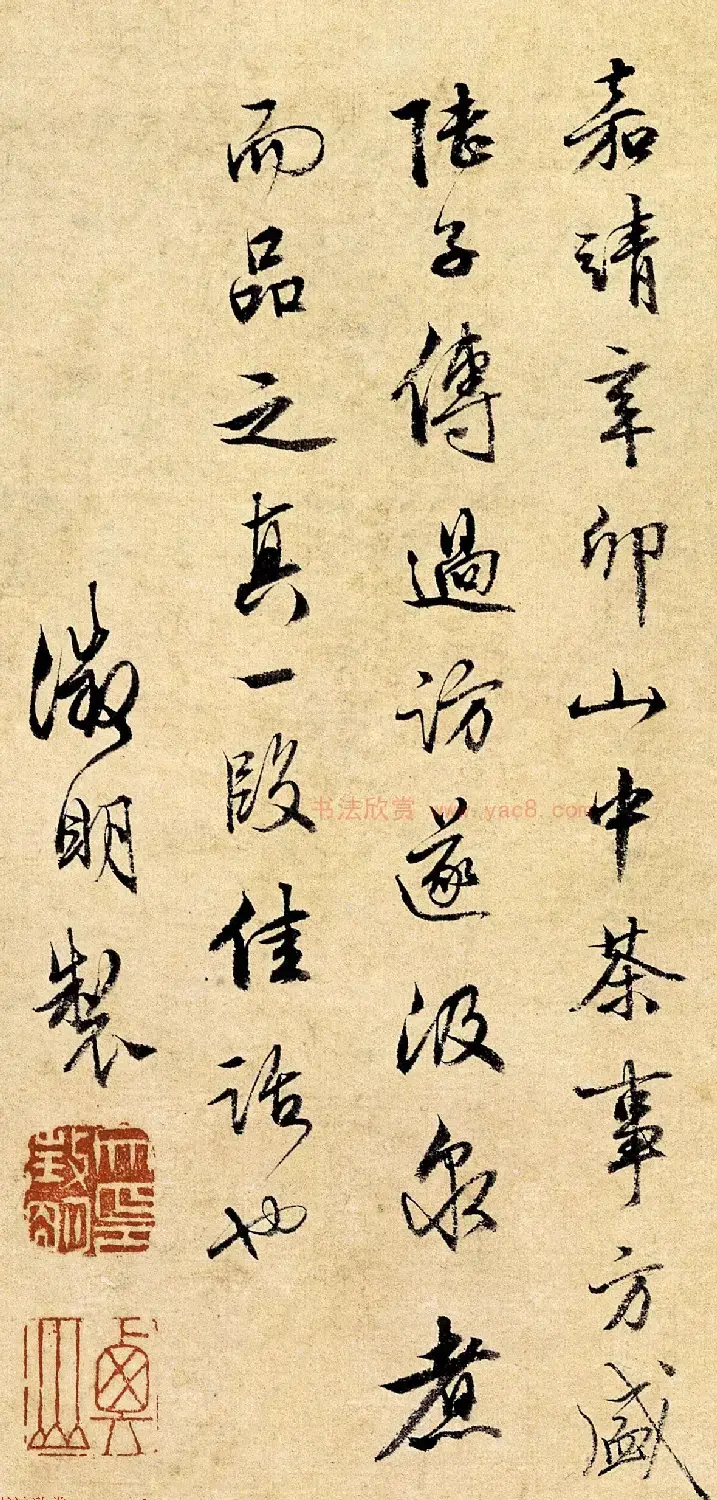 嘉靖辛卯山中茶事方盛
陸子傳過訪遂汲泉煮
而品之真一段佳話也
徵明製
书法欣赏 www.yac8.com